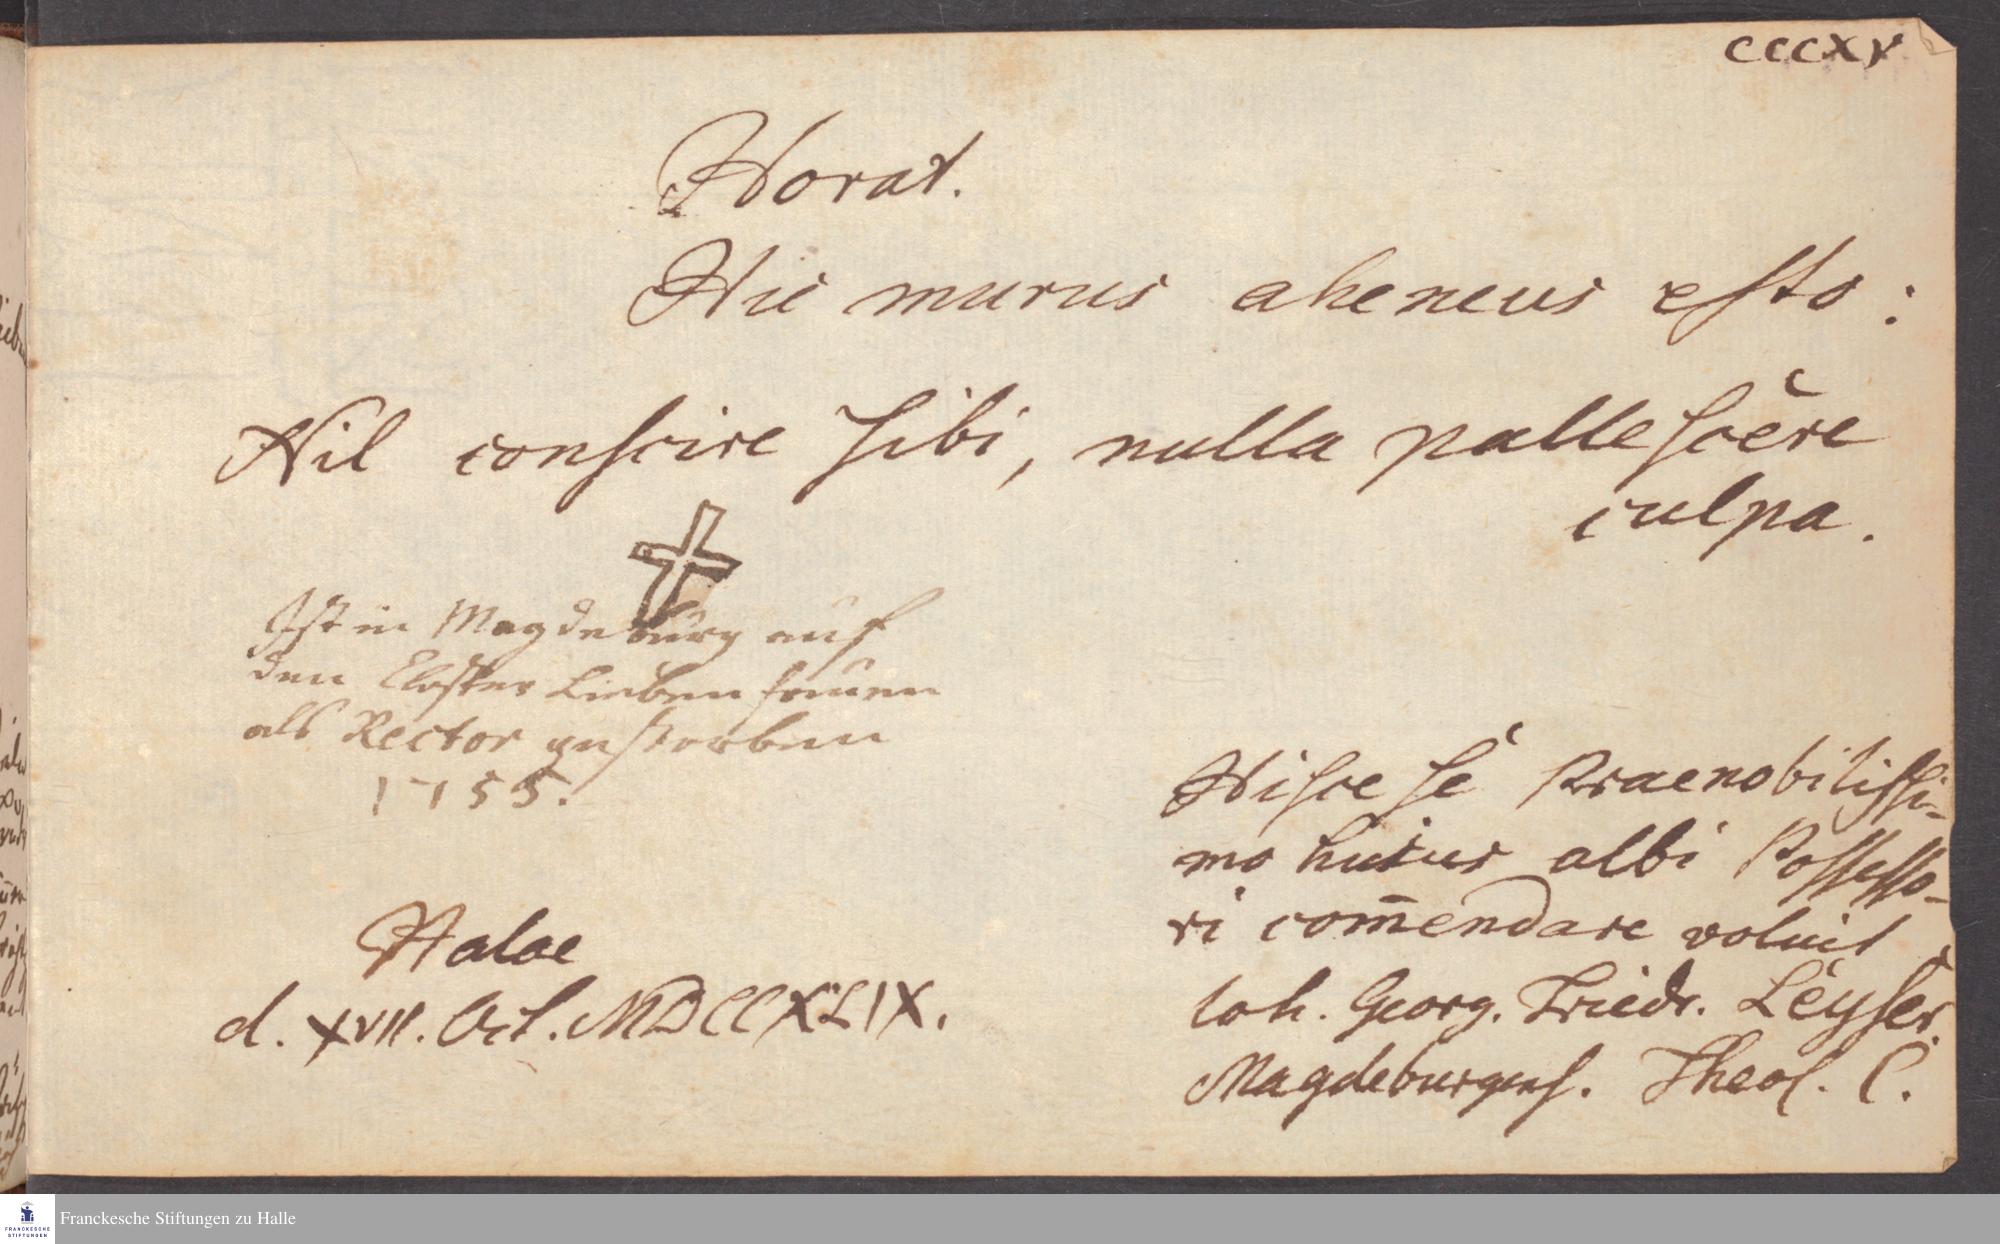 CCCXV
Horat.
Hic murus aheneus esto:
Nil conscire sibi, nulla pallescere
culpa.
Ist in Magdeburg auf
den Closter Lieben frauen
als Rector gestorben
1755.
Hisce se Praenobilissi-
mo huius albi Possesso-
ri com̄endare voluit
Ioh. Georg. Friedr. Leyser.
Magdeburgens. Theol. C.
Halae
d. XVII. Oct. MDCCXLIX.
Franckesche Stiftungen zu Halle
FRANCKESCHE
STIFTUNGEN